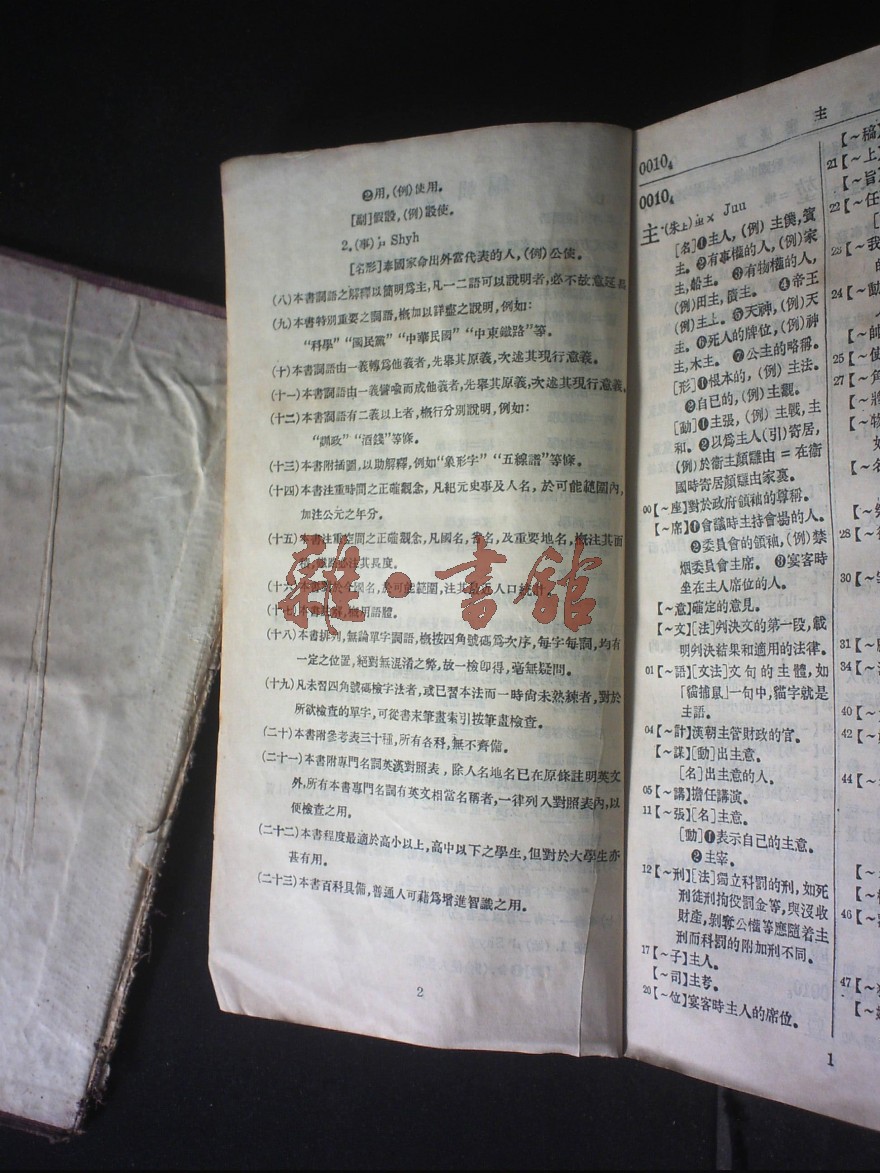 ❷用,(例)使用。
[副]假設,(例)設使。
2.(事)ㄕˋ Shyh
[名形]奉國家命出外當代表的人,(例)公使。
(八)本書詞語之解釋以簡明爲主,凡一二語可以說明者,必不故意延長
(九)本書特別重要之詞語,概加以詳盡之說明,例如:
“科學”“國民黨”“中華民國”“中東鐵路”等。
(十)本書詞語由一義轉爲他義者,先舉其原義,次述其現行意義。
(十一)本書詞語由一義譬喻而成他義者,先舉其原義,次述其現行意義,
(十二)本書詞語有二義以上者,概行分別說明,例如:
“訓政”“酒錢”等條。
(十三)本書附插圖,以助解釋,例如“象形字”“五線譜”等條。
(十四)本書注重時間之正確觀念,凡紀元史事及人名,於可能範圍內,
加注公元之年分。
(十五)本書注重空間之正確觀念,凡國名,省名,及重要地名,概注其面
積,鐵路必注其長度。
(十六)本書對於各國名,於可能範圍,注其最近人口統計。
(十七)本書註解,概用語體。
(十八)本書排列,無論單字詞語,概按四角號碼爲次序,每字每詞,均有
一定之位置,絕對無混淆之弊,故一檢即得,毫無疑問。
(十九)凡未習四角號碼檢字法者,或已習本法而一時尚未熟練者,對於
所欲檢查的單字,可從書末筆畫索引按筆畫檢查。
(二十)本書附參考表三十種,所有各科,無不齊備。
(二十一)本書附專門名詞英漢對照表,除人名地名已在原條註明英文
外,所有本書專門名詞有英文相當名稱者,一律列入對照表內,以
便檢查之用。
(二十二)本書程度最適於高小以上,高中以下之學生,但對於大學生亦
甚有用。
(二十三)本書百科具備,普通人可藉爲增進智識之用。
2
雜·書舘
主
0010₄
0010₄
主·(朱上)ㄓㄨˇ Juu
[名]❶主人,(例)主僕,賓
主。❷有事權的人,(例)家
主,船主。❸有物權的人,
(例)田主,債主。❹帝王
(例)主上。❺天神,(例)天
主。❻死人的牌位,(例)神
主,木主。❼公主的略稱。
[形]❶根本的,(例)主法。
❷自己的,(例)主觀。
[動]❶主張,(例)主戰,主
和。❷以爲主人(引)寄居,
(例)於衞主顏讎由=在衞
國時寄居顏讎由家裏。
00【~座】對於政府領袖的尊稱。
【~席】❶會議時主持會場的人。
❷委員會的領袖,(例)禁
烟委員會主席。❸宴客時
坐在主人席位的人。
【~意】確定的意見。
【~文】[法]判決文的第一段,載
明判決結果和適用的法律。
01【~語】[文法]文句的主體,如
「貓捕鼠」一句中,貓字就是
主語。
04【~計】漢朝主管財政的官。
【~謀】[動]出主意。
[名]出主意的人。
05【~講】擔任講演。
11【~張】[名]主意。
[動]❶表示自己的主意。
❷主宰。
12【~刑】[法]獨立科罰的刑,如死
刑徒刑拘役罰金等,與沒收
財產,剝奪公權等應隨着主
刑而科罰的附加刑不同。
17【~子】主人。
【~司】主考。
20【~位】宴客時主人的席位。
1
【~稿】
21【~上】
【~旨】
22【~任
23【~我
24【~動
【~帥
25【~使
27【~角
【~將
【~物
【~名
28【~
30【~
31【~
34【~
40【~
42【~
44【~
46【~
47【~